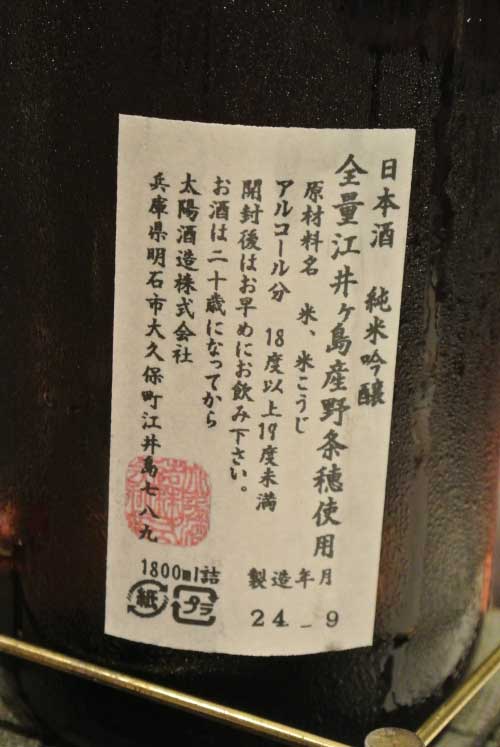 日本酒　純米吟醸
全量江井ヶ島産野条穂使用
原材料名　米、米こうじ
アルコール分　18度以上19度未満
開封後はお早めにお飲み下さい。
お酒は二十歳になってから
太陽酒造株式会社
兵庫県明石市大久保町江井島七八九
1800ml詰
製造年月
24_9
紙
プラ